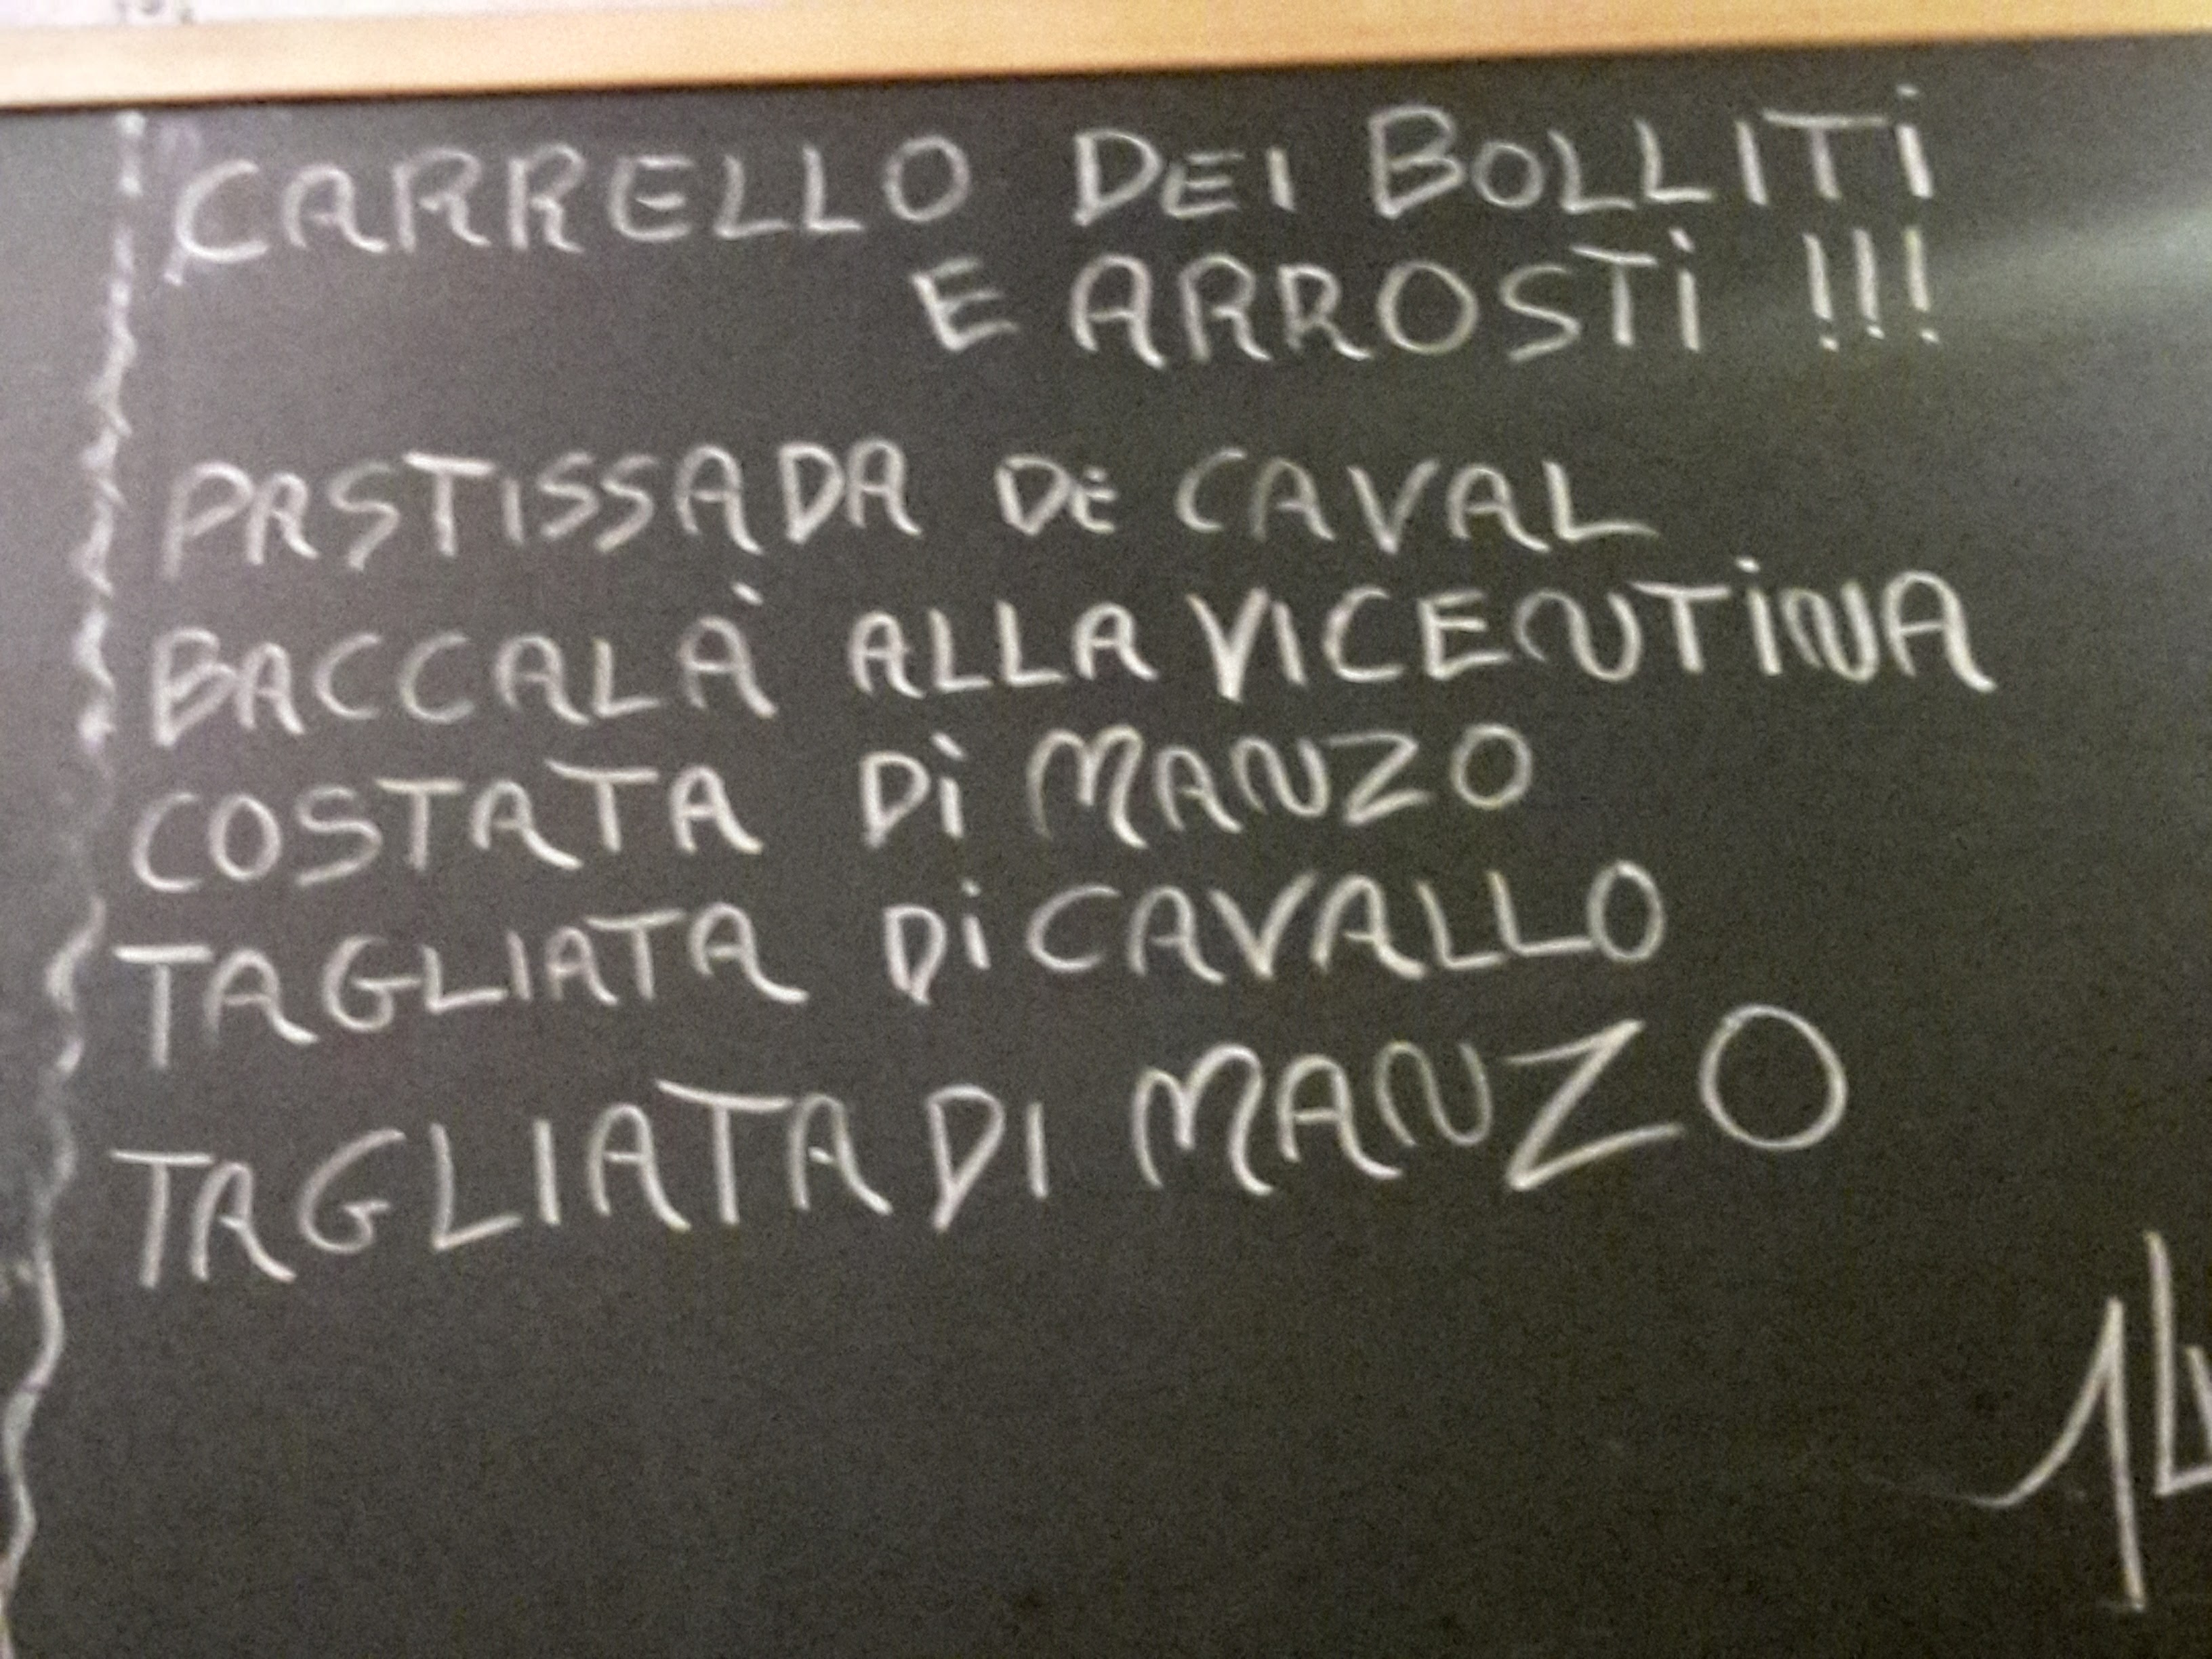 CARRELLO DEI BOLLITI
E ARROSTI !!!
PASTISSADA DE CAVAL
BACCALÀ ALLA VICENTINA
COSTATA DI MANZO
TAGLIATA DI CAVALLO
TAGLIATA DI MANZO